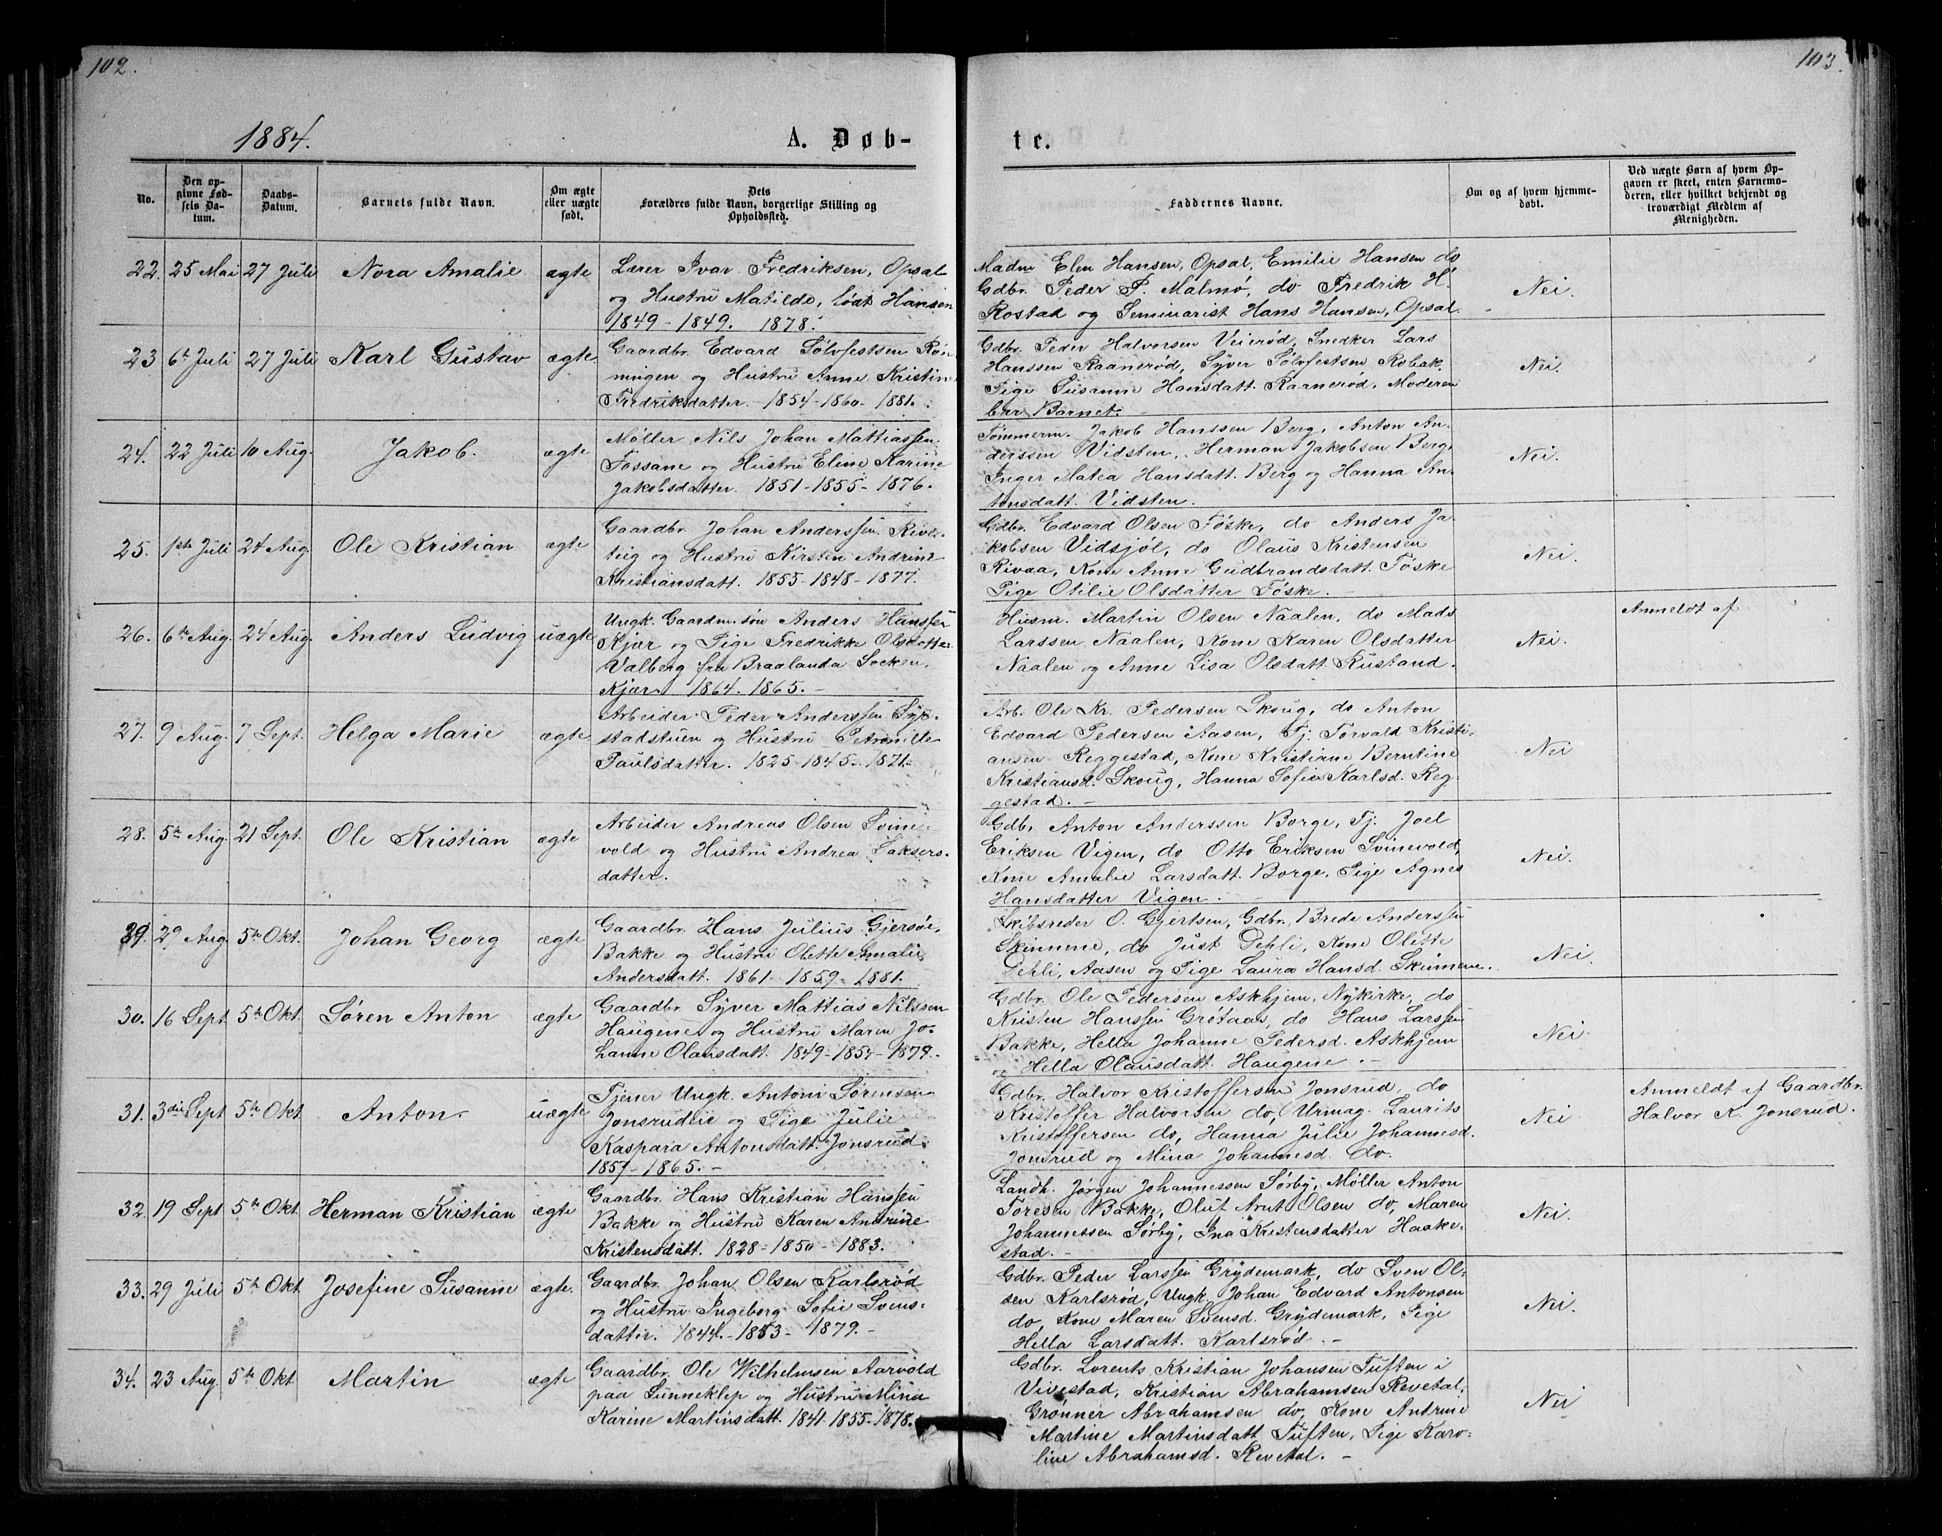 102.
1884.
A. Døb-
No.
Den op-
givne Fød-
sels Da-
tum.
Daabs-
Datum.
Barnets fulde Navn.
Om ægte
eller uægte
født.
Dets
Forældres fulde Navn, borgerlige Stilling og
Opholdssted.
22. 25 Mai 27 Juli Nora Amalie ægte
Lærer Ivar Fredriksen, Opsal
og Hustru Matilde, født Hansen
1849 - 1849. 1878.
23 6te Juli 27 Juli Karl Gustav ægte
Gaardbr. Edvard Sølvfestsen Røn-
ningen og Hustru Anne Kristine
Fredriksdatter. 1854-1860-1881.
24. 22 Juli 10 Aug. Jakob. ægte
Møller Nils Johan Mattiassen
Fossane og Hustru Eline Karine
Jakobsdatter. 1851-1855-1876.
25. 1ste Juli 24 Aug. Ole Kristian ægte
Gaardbr. Johan Anderssen
og Hustru Kirsten Andrine
Kristiansdatt. 1855-1848-1877.
26. 6te Aug. 24 Aug. Anders Ludvig uægte
Ungk. Gaardm. søn Anders Hanssen
Kjær og Pige Fredrikke Olsdatter
Valberg fra Braalanda Socken,
Kjær. 1864. 1865. -
27. 9 Aug. 7 Sept. Helga Marie ægte
Arbeider Peder Anderssen
og Hustru
Paulsdatter. 1825-1845-1871.
28. 5te Aug. 21 Sept. Ole Kristian ægte
Arbeider Andreas Olsen Svine-
vold og Hustru Andrea Saksers-
datter.
29. 29 Aug. 5te Okt. Johan Georg ægte
Gaardbr. Hans Julius Gjersøe,
Bakke og Hustru Olette Amalie
Andersdatt. 1861-1859-1881.
30. 16 Sept 5te Okt. Søren Anton ægte
Gaardbr. Syver Mattias Nilssen
Haugene og Hustru Maren Jo-
hanne Olausdatt. 1849-1854-1879.
31. 3die Sept 5te Okt Anton uægte
Tjener Ungk. Anton Sørensen
og Pige Julie
Kaspara Antonsdatt. Jonsrud
1857-1865. -
32. 19 Sept 5te Okt. Herman Kristian ægte
Gaardbr. Hans Kristian Hanssen
Bakke og Hustru Karen Andrine
Kristensdatt. 1828-1850-1883.
33. 29 Juli 5te Okt Josefine Susanne ægte.
Gaardbr. Johan Olsen Karlsrød
og Hustru Ingeborg Sofie Svens-
datter. 1844-1853-1879.-
34. 23 Aug. 5te Okt Martin ægte
Gaardbr. Ole Wilhelmsen Aarvold
paa Sunneklep og Hustru Mina
Karine Martinsdatt. 1841-1855-1878.
103.
te.
Faddernes Navne.
Om og af hvem hjemme-
døbt.
Ved uægte Børn af hvem Op-
gaven er skeet, enten Barnemo-
deren, eller hvilket bekjendt og
troværdigt Medlem af
Menigheden.
Madm Elen Hansen, Opsal, Emilie Hansen do
Gdbr. Peder P. Malmø, do Fredrik H.
Rostad og Seminarist Hans Hansen, Opsal.
Nei.
Gdbr. Peder Halvorsen Veierød, Snedker Lars
Hanssen Raanerød, Syver Sølvfestsen Robak,
Pige Susanne Hansdatt. Raanerød. Moderen
bar Barnet.
Nei.
Tømmerm. Jakob Hanssen Berg, Anton An-
derssen Vidsten, Herman Jakobsen Berg,
Inger Matea Hansdatt. Berg og Hanna An-
tonsdatt. Vidsten.
Nei.
Gdbr. Edvard Olsen Føske, do Anders Ja-
kobsen Vidsjøl, do Olaus Kristensen
Rivaa, Kone Anne Gudbrandsdatt. Føske
Pige Otilie Olsdatter Føske. -
Nei.
Husm. Martin Olsen Naalen, do Mads
Larssen Naalen, Kone Karen Olsdatter
Naalen og Anne Lisa Olsdatt. Rustand.
Nei.
Anmeldt af
Arb. Ole Kr. Pedersen Skoug, do Anton
Edvard Pedersen Aasen, Tj. Torvald Kristi-
ansen Reggestad, Kone Kristiane Berntine
Kristiansd. Skoug, Hanna Sofie Karlsd. Reg-
gestad. -
Nei
Gdbr. Anton Anderssen Borge, Tj. Joel
Eriksen Vigen, do Otto Eriksen Svinevold,
Kone Amalie Larsdatt. Borge, Pige Agnes
Hansdatter Vigen.
Nei.
Skibsreder O. Gjertsen, Gdbr. Brede Anderssen
Skimme, do Just Dehli, Kone Olette
Dehli, Aasen og Pige Laura Hansd. Skimme.
Nei.
Gdbr. Ole Pedersen Askhjem, Nykirke, do
Kristen Hanssen Grøtaas, do Hans Larssen
Bakke, Hella Johanne Pedersd. Askhjem
og Hella Olausdatt. Haugene. -
Nei.
Gdbr. Halvor Kristoffersen Jonsrud, do
Kristoffer Halvorsen do, Urmag. Laurits
Kristoffersen do, Hanna Julie Johannesd.
Jonsrud og Mina Johannesd. do.
Nei
Anmeldt af Gaardbr.
Halvor K. Jonsrud.
Landh. Jørgen Johannessen Sørby, Møller Anton
Toresen Bakke, Oluf Arnt Olsen do, Maren
Johannessen Sørby, Ina Kristensdatter Haake-
stad. -
Nei.
Gdbr. Peder Larssen Grydemark, do Sven Ol-
sen Karlsrød, Ungk. Johan Edvard Antonsen
do, Kone Maren Svensd. Grydemark, Pige
Hella Larsdatt. Karlsrød. -
Nei.
Gdbr. Lorents Kristian Johansen Tuften i
Vivestad, Kristian Abrahamsen Revetal,
Grønner Abrahamsen do, Kone Andrine
Martine Martinsdatt. Tuften, Pige Karo-
line Abrahamsd. Revetal. -
Nei